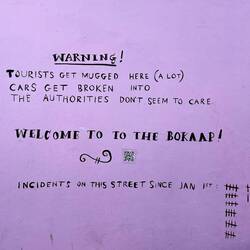 WARNING!
TOURISTS GET MUGGED HERE (A LOT)
CARS GET BROKEN INTO
THE AUTHORITIES DON'T SEEM TO CARE.
WELCOME TO TO THE BOKAAP!
INCIDENTS ON THIS STREET SINCE JAN 1ST: